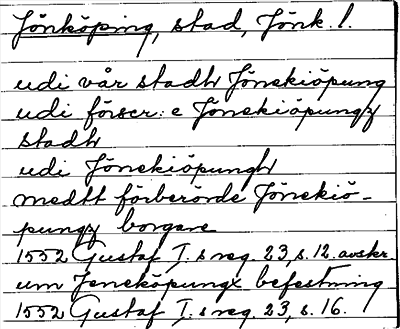 Jönköping, stad, Jönk. l.
udi vår stadh Jönekiöpung
udi förscr: e Jönekiöpungz
stadh
udi Jönekiöpungh
medtt förberörde Jönekiö-
pungz borgare
1552 Gustaf I. s reg. 23, s. 12. avskr.
um Jeneköpungx befestning
1552 Gustaf I. s reg. 23, s. 16.